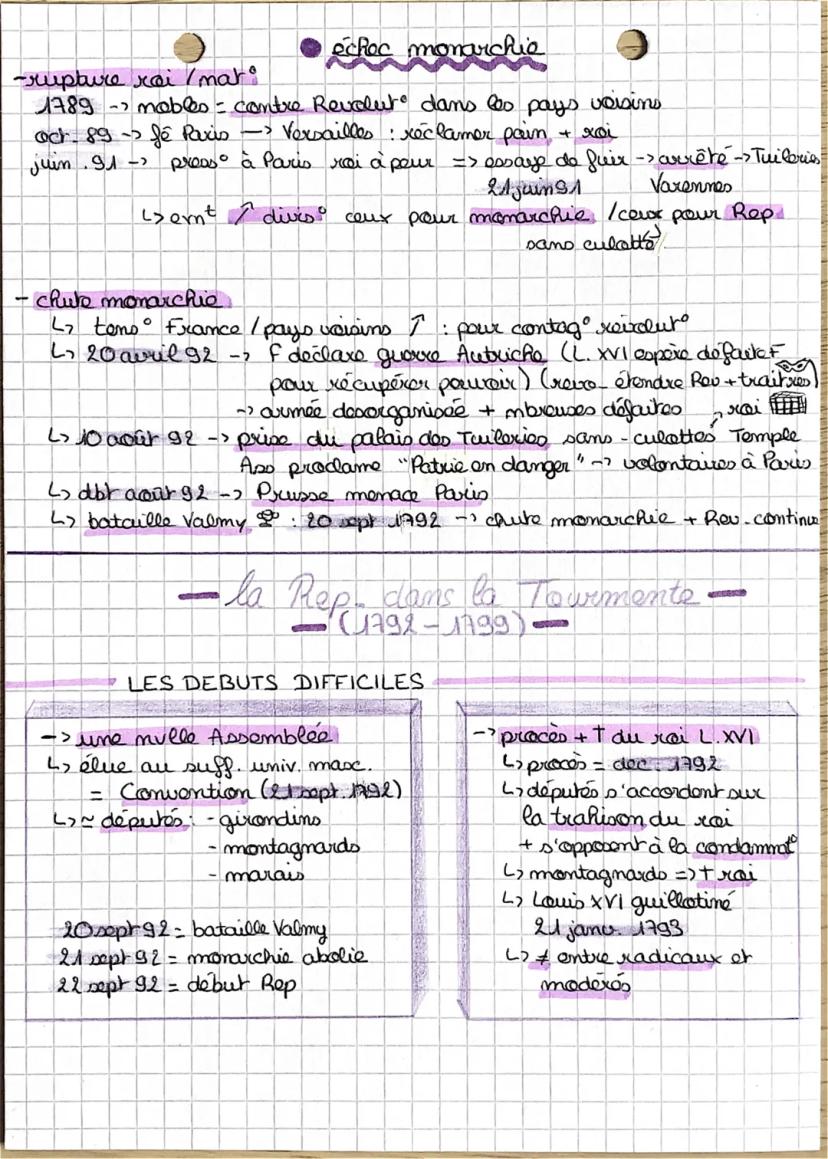 échec monarchie
-rupture roi / nat°
1789 -> nobles = contre Revolut° dans les pays voisins
oct. 89 -> fê Paris -> Versailles : réclamer pain + roi
juin . 91 -> press° à Paris roi à peur => essaye de fuir -> arrêté -> Tuileries
21 juin 91 Varennes
↳ evnt ↗ divis° ceux pour monarchie / ceux pour Rep
sans culotte
- chute monarchie
↳ tens° France / pays voisins ↑ : peur contag° révolut°
↳ 20 avril 92 -> F déclare guerre Autriche (L. XVI espère défaite F
pour récupérer pouvoir) (revo. étendre Rev + traitres)
-> armée desorganisée + nbreuses défaites roi
↳ 10 août 92 -> prise du palais des Tuileries sans-culottes Temple
Ass proclame "Patrie en danger" -> volontaires à Paris
↳ dbt août 92 -> Prusse menace Paris
↳ bataille Valmy : 20 sept 1792 -> chute monarchie + Rev. continue
la Rep. dans la Tourmente
(1792-1799)
LES DEBUTS DIFFICILES
-> une nvlle Assemblée
↳ élue au suff. univ. masc.
= Convention (21 sept. 1792)
↳ ≃ députés : - girondins
- montagnards
- marais
20 sept 92 = bataille Valmy
21 sept 92 = monarchie abolie
22 sept 92 = début Rep
-> procès + † du roi L. XVI
↳ procès = dec. 1792
↳ députés s'accordent sur
la trahison du roi
+ s'opposent à la condamnat°
↳ montagnards => † roi
↳ Louis XVI guillotiné
21 janv. 1793
↳ ≠ entre radicaux et
modérés